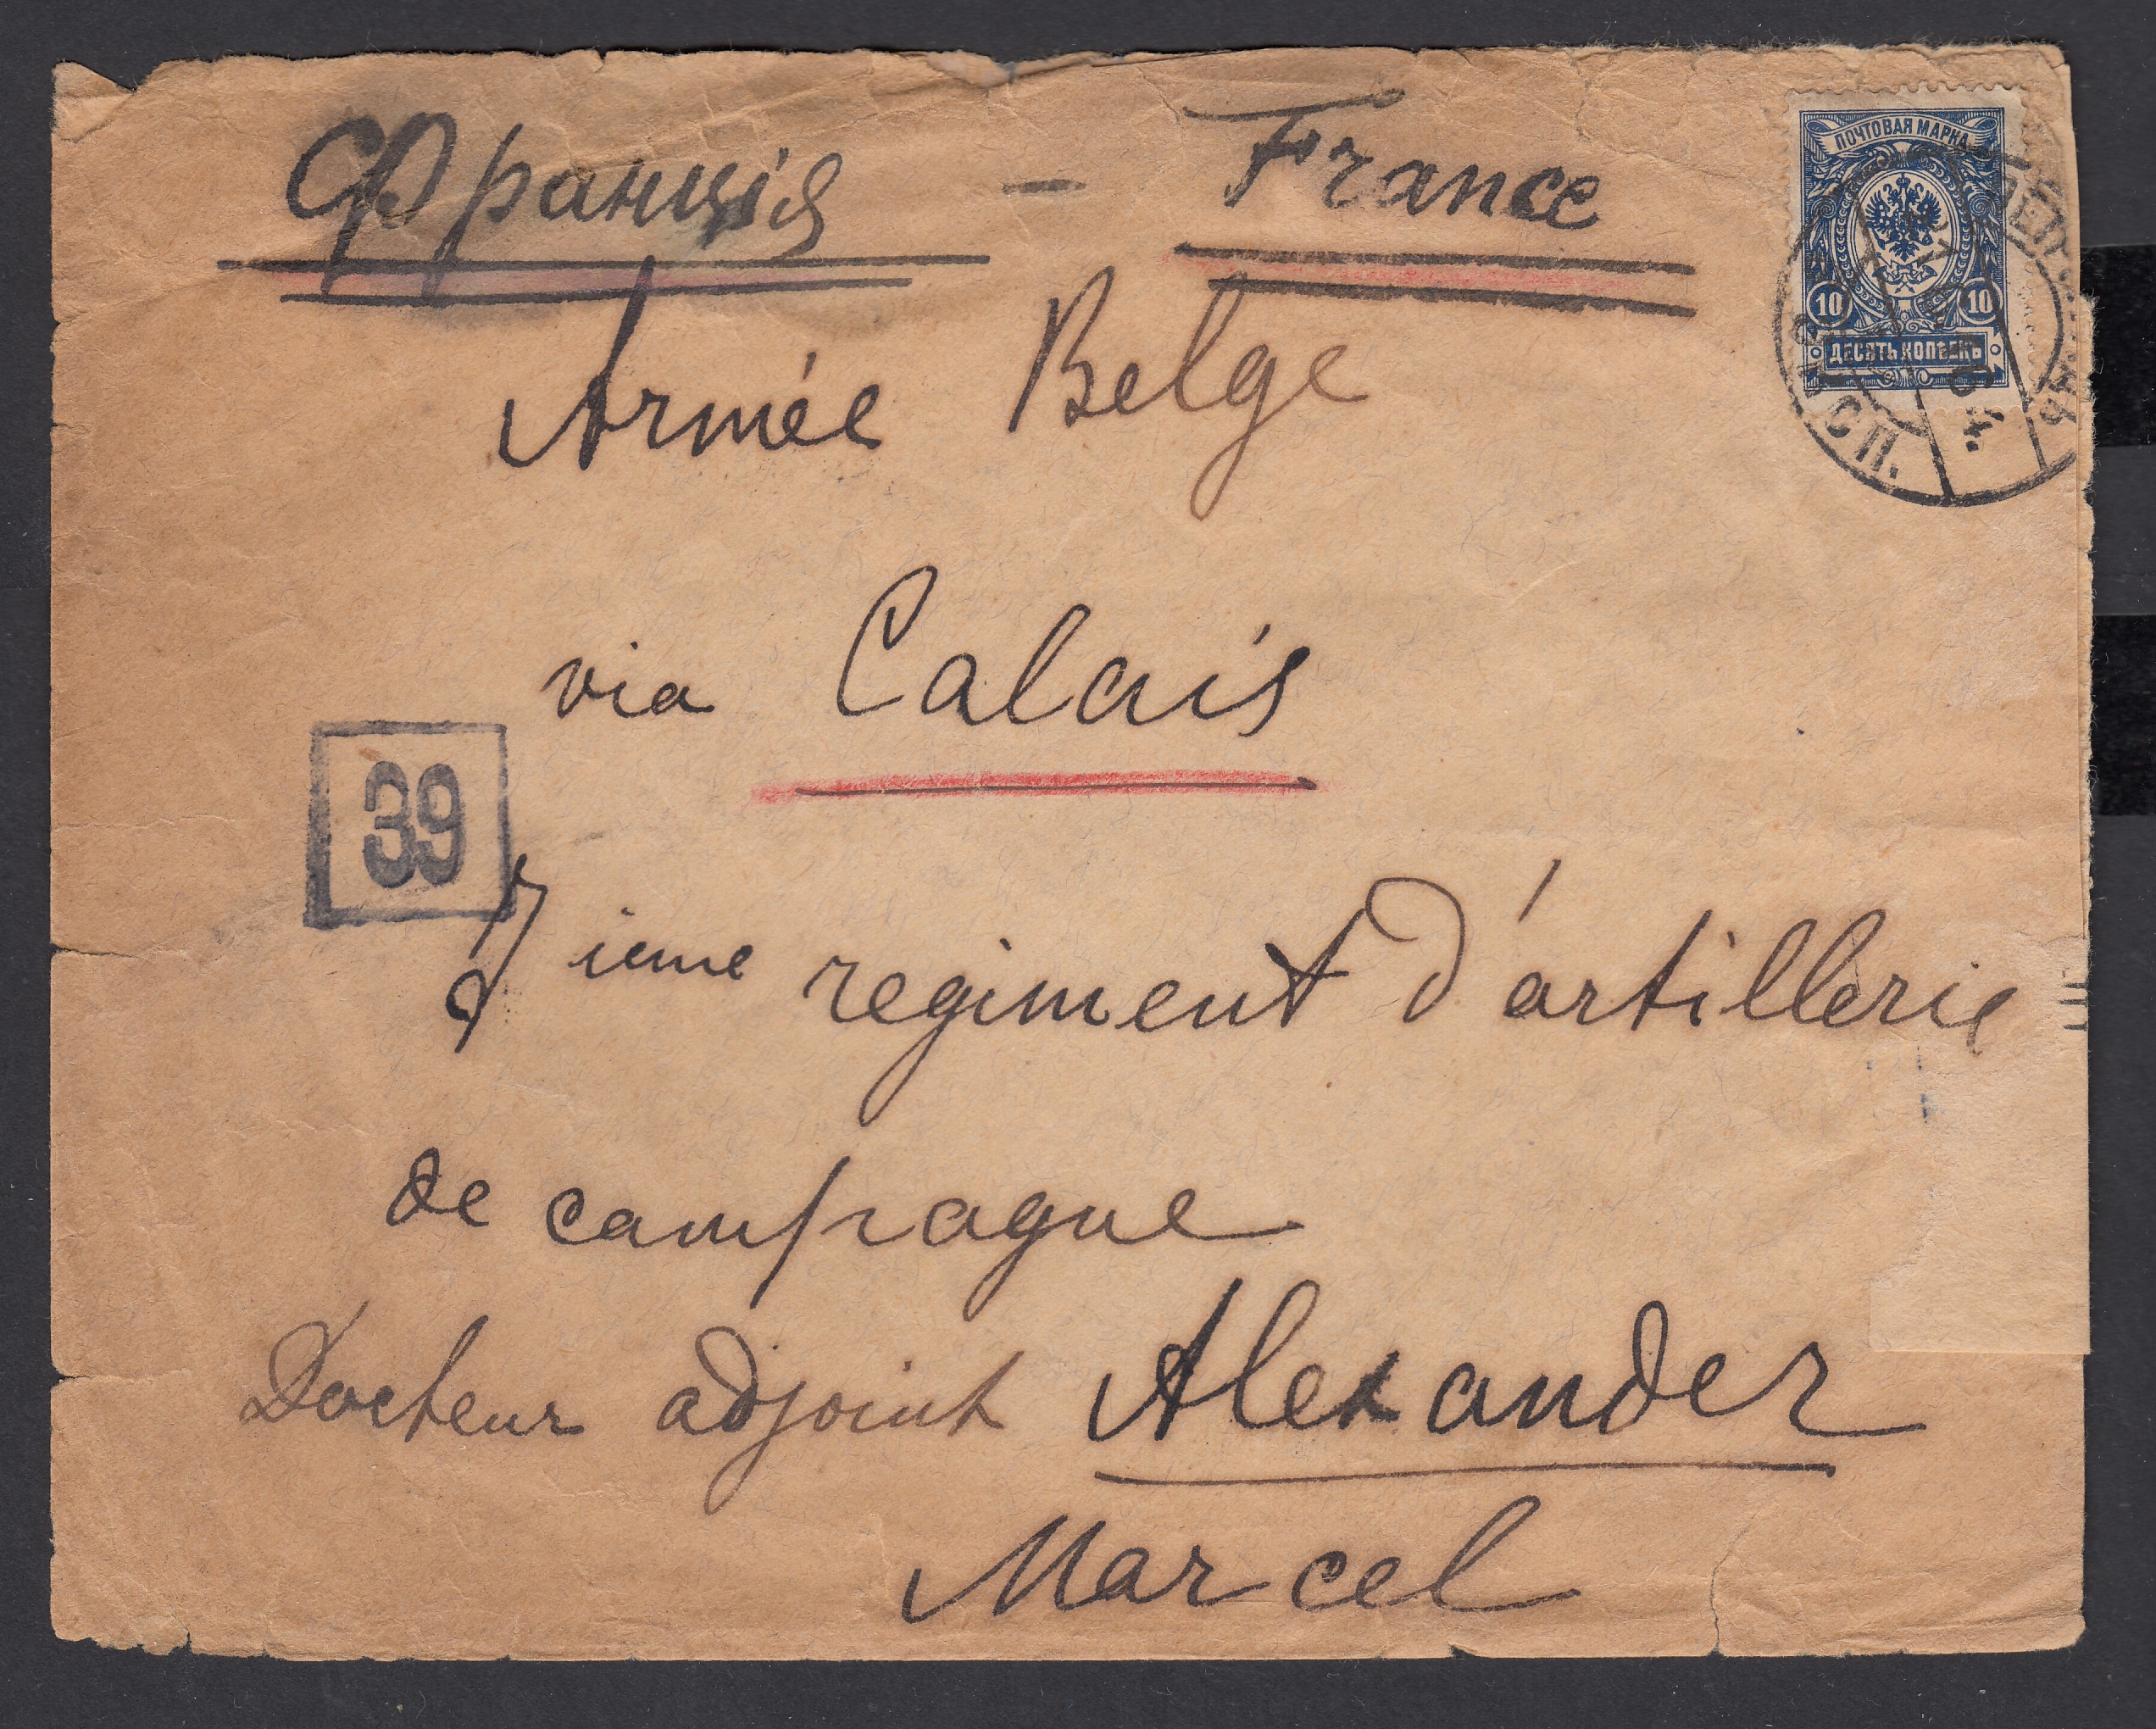 Франція - France
ПОЧТОВАЯ МАРКА
10 10
ДЕСЯТЬ КОПѢЕКЪ
Armée Belge
via Calais
39
7 ieme regiment d'artillerie
de campagne
Docteur adjoint Alexander
Marcel